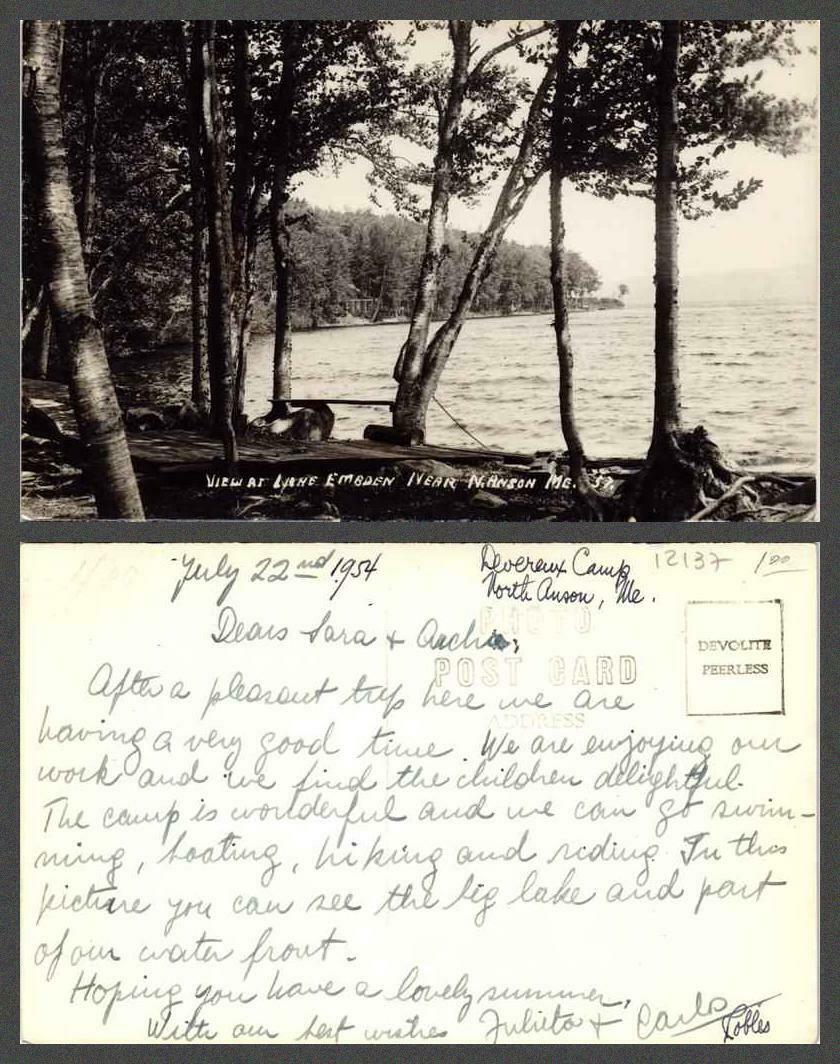 VIEW AT LAKE EMBDEN NEAR N. ANSON ME. 57.
July 22nd 1954
Devereux Camp
North Anson, Me.
12137
1 00
PHOTO
POST CARD
ADDRESS
DEVOLITE
PEERLESS
Dears Sara + Archie;
After a pleasant trip here we are
having a very good time. We are enjoying our
work and we find the children delightful.
The camp is wonderful and we can go swim-
ming, boating, hiking and riding. In this
picture you can see the big lake and part
of our water front.
Hoping you have a lovely summer,
With our best wishes Julieta + Carlo
Robles